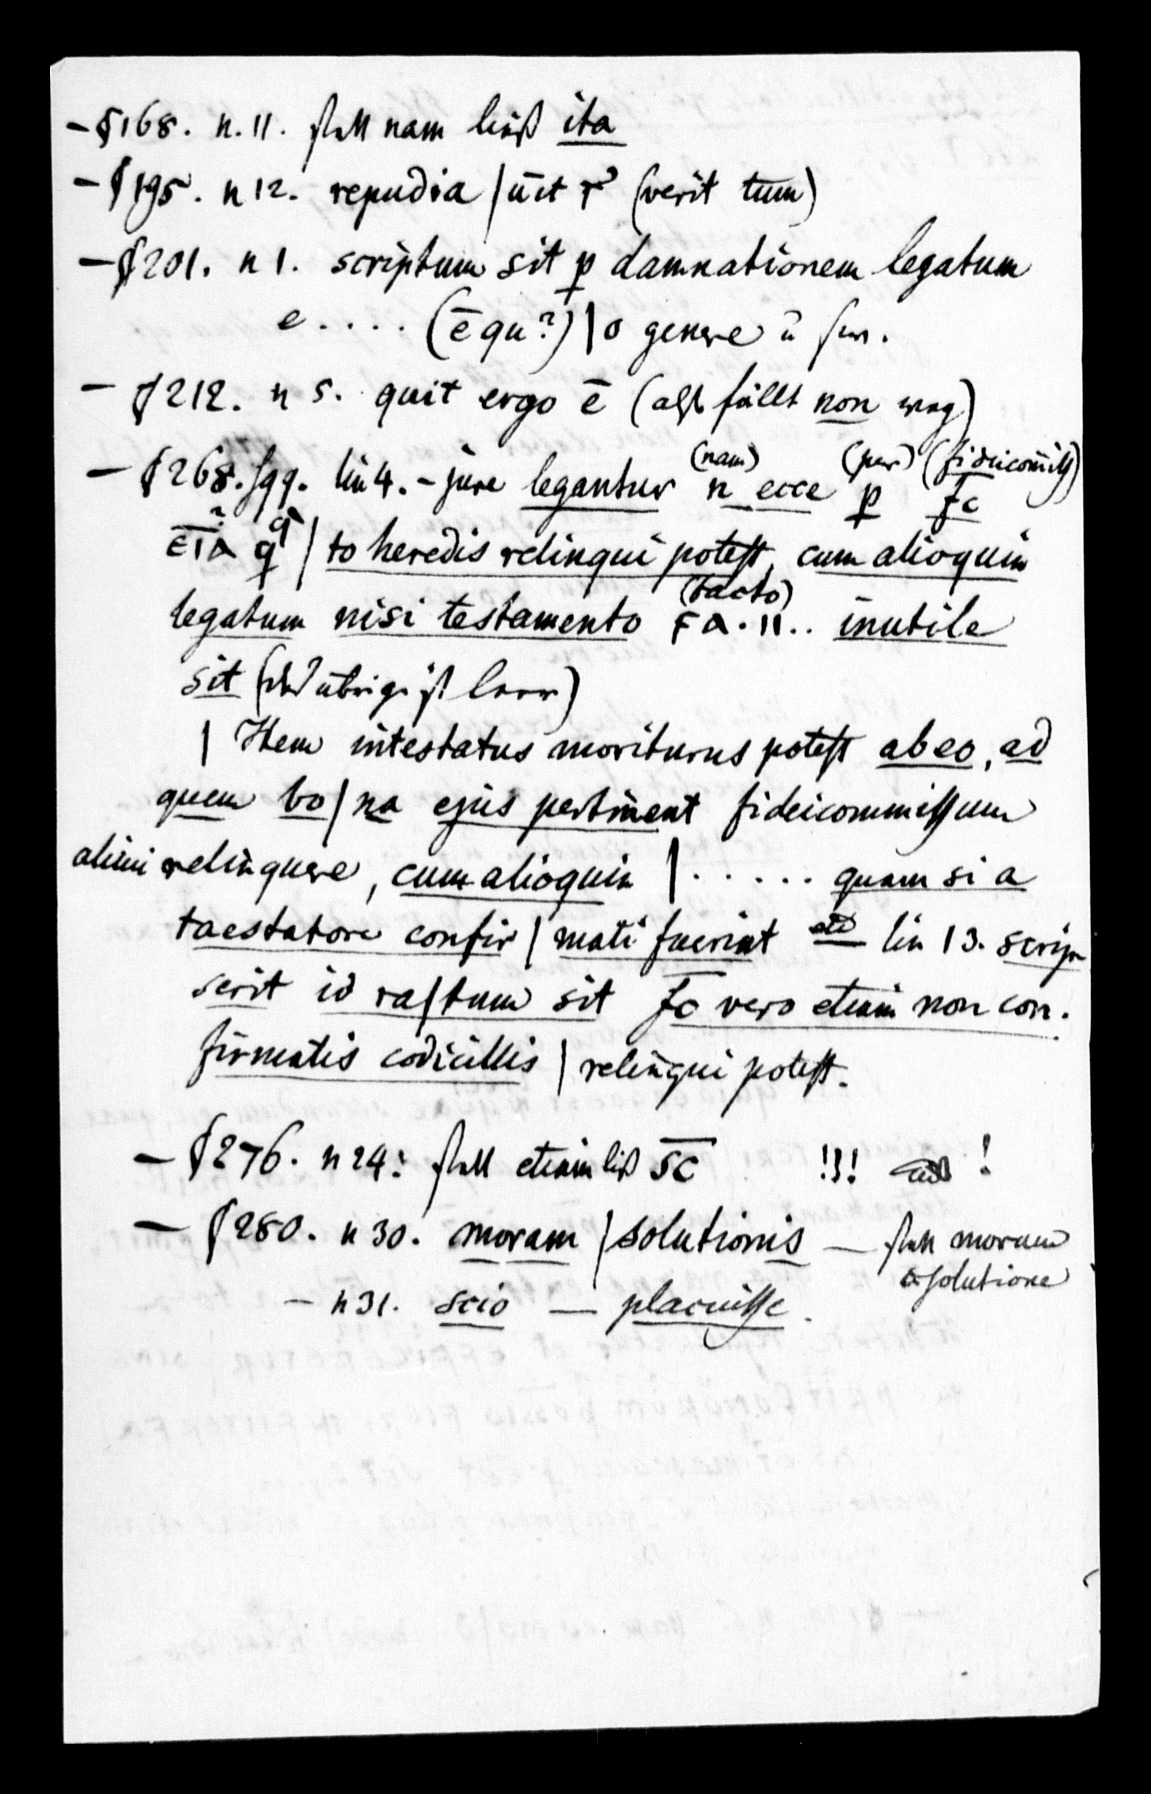 – §168. n. 11. statt nam ließ ita
– §195. n 12. repudia | ūit r̄ (verit tum)
– §201. n 1. scriptum sit p damnationem legatum
e . . . . (ē qu?) | o genere ū
– §212. n 5. quit ergo ē (also fällt non weg)
– §268. sqq. lin 4. – jure legantur n (nam) ecce p (per) fc (fideicōmiss)
ETA q | to heredis relinqui potest, cum alioquin
legatum nisi testamento FA . II . . (facto) inutile
sit (das übrige ist leer)
| Item intestatus moriturus potest ab eo, ad
quem bo | na ejus pertinent fideicommissum
alicui relinquere, cum alioquin | . . . . . quam si a
taestatore confir | mati fuerint lin 13. scrip
serit id ra | tum sit fc vero etiam non con.
firmatis codicillis | relinqui potest.
– §276. n 24: statt etiam ließ SC !!! !
– §280. n 30. moram | solutionis — statt moram
solutione
– n 31. scio — placuisse.